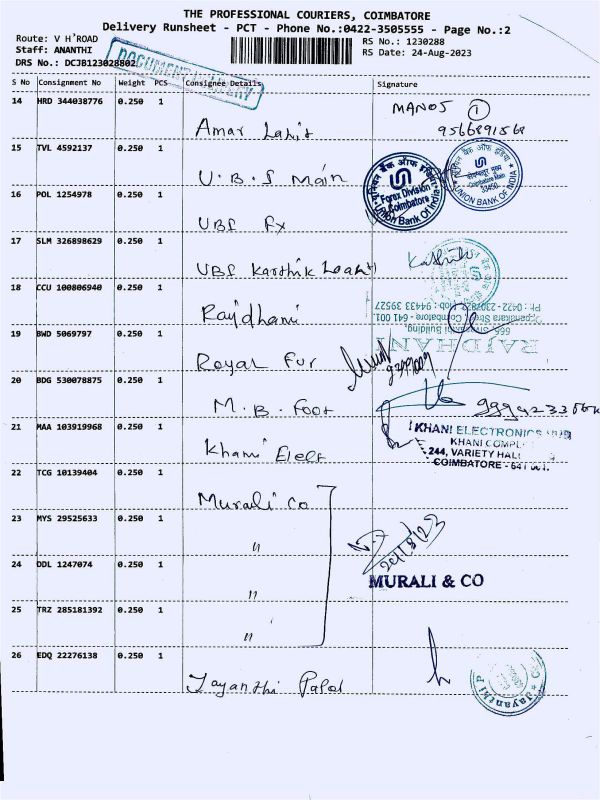 THE PROFESSIONAL COURIERS, COIMBATORE
Delivery Runsheet - PCT - Phone No.:0422-3505555 - Page No.:2
Route: V H'ROAD
Staff: ANANTHI
DRS No.: DCJB123028802
RS No.: 1230288
RS Date: 24-Aug-2023
DOCUMENT DELIVERY
S No Consignment No Weight PCS Consignee Details Signature
14 HRD 344038776 0.250 1
Amar Lahit
MANOJ 1
9566891568
15 TVL 4592137 0.250 1
U.B.I Main
यूनियन बैंक ऑफ इंडिया
UNION BANK OF INDIA
16 POL 1254978 0.250 1
UBI Fx
यूनियन बैंक ऑफ इंडिया
Forex Division
Coimbatore
Union Bank Of India
17 SLM 326898629 0.250 1
UBI Karthik
Karthik
18 CCU 100806940 0.250 1
Rajdhani
RAJDHANI
Building,
Coimbatore - 641 001.
Ph : 0422 - Mob : 94433 39527
19 BWD 5069797 0.250 1
Royal Fur
20 BDG 530078875 0.250 1
M.B. Foot
21 MAA 103919968 0.250 1
Khani Elect
KHANI ELECTRONICS HUB
KHANI
244, VARIETY HALL
COIMBATORE - 641 001.
22 TCG 10139404 0.250 1
Murali Co
23 MYS 29525633 0.250 1
"
24/8/23
24 DDL 1247074 0.250 1
"
MURALI & CO
25 TRZ 285181392 0.250 1
"
26 EDQ 22276138 0.250 1
Jayanthi
Jayanthi P